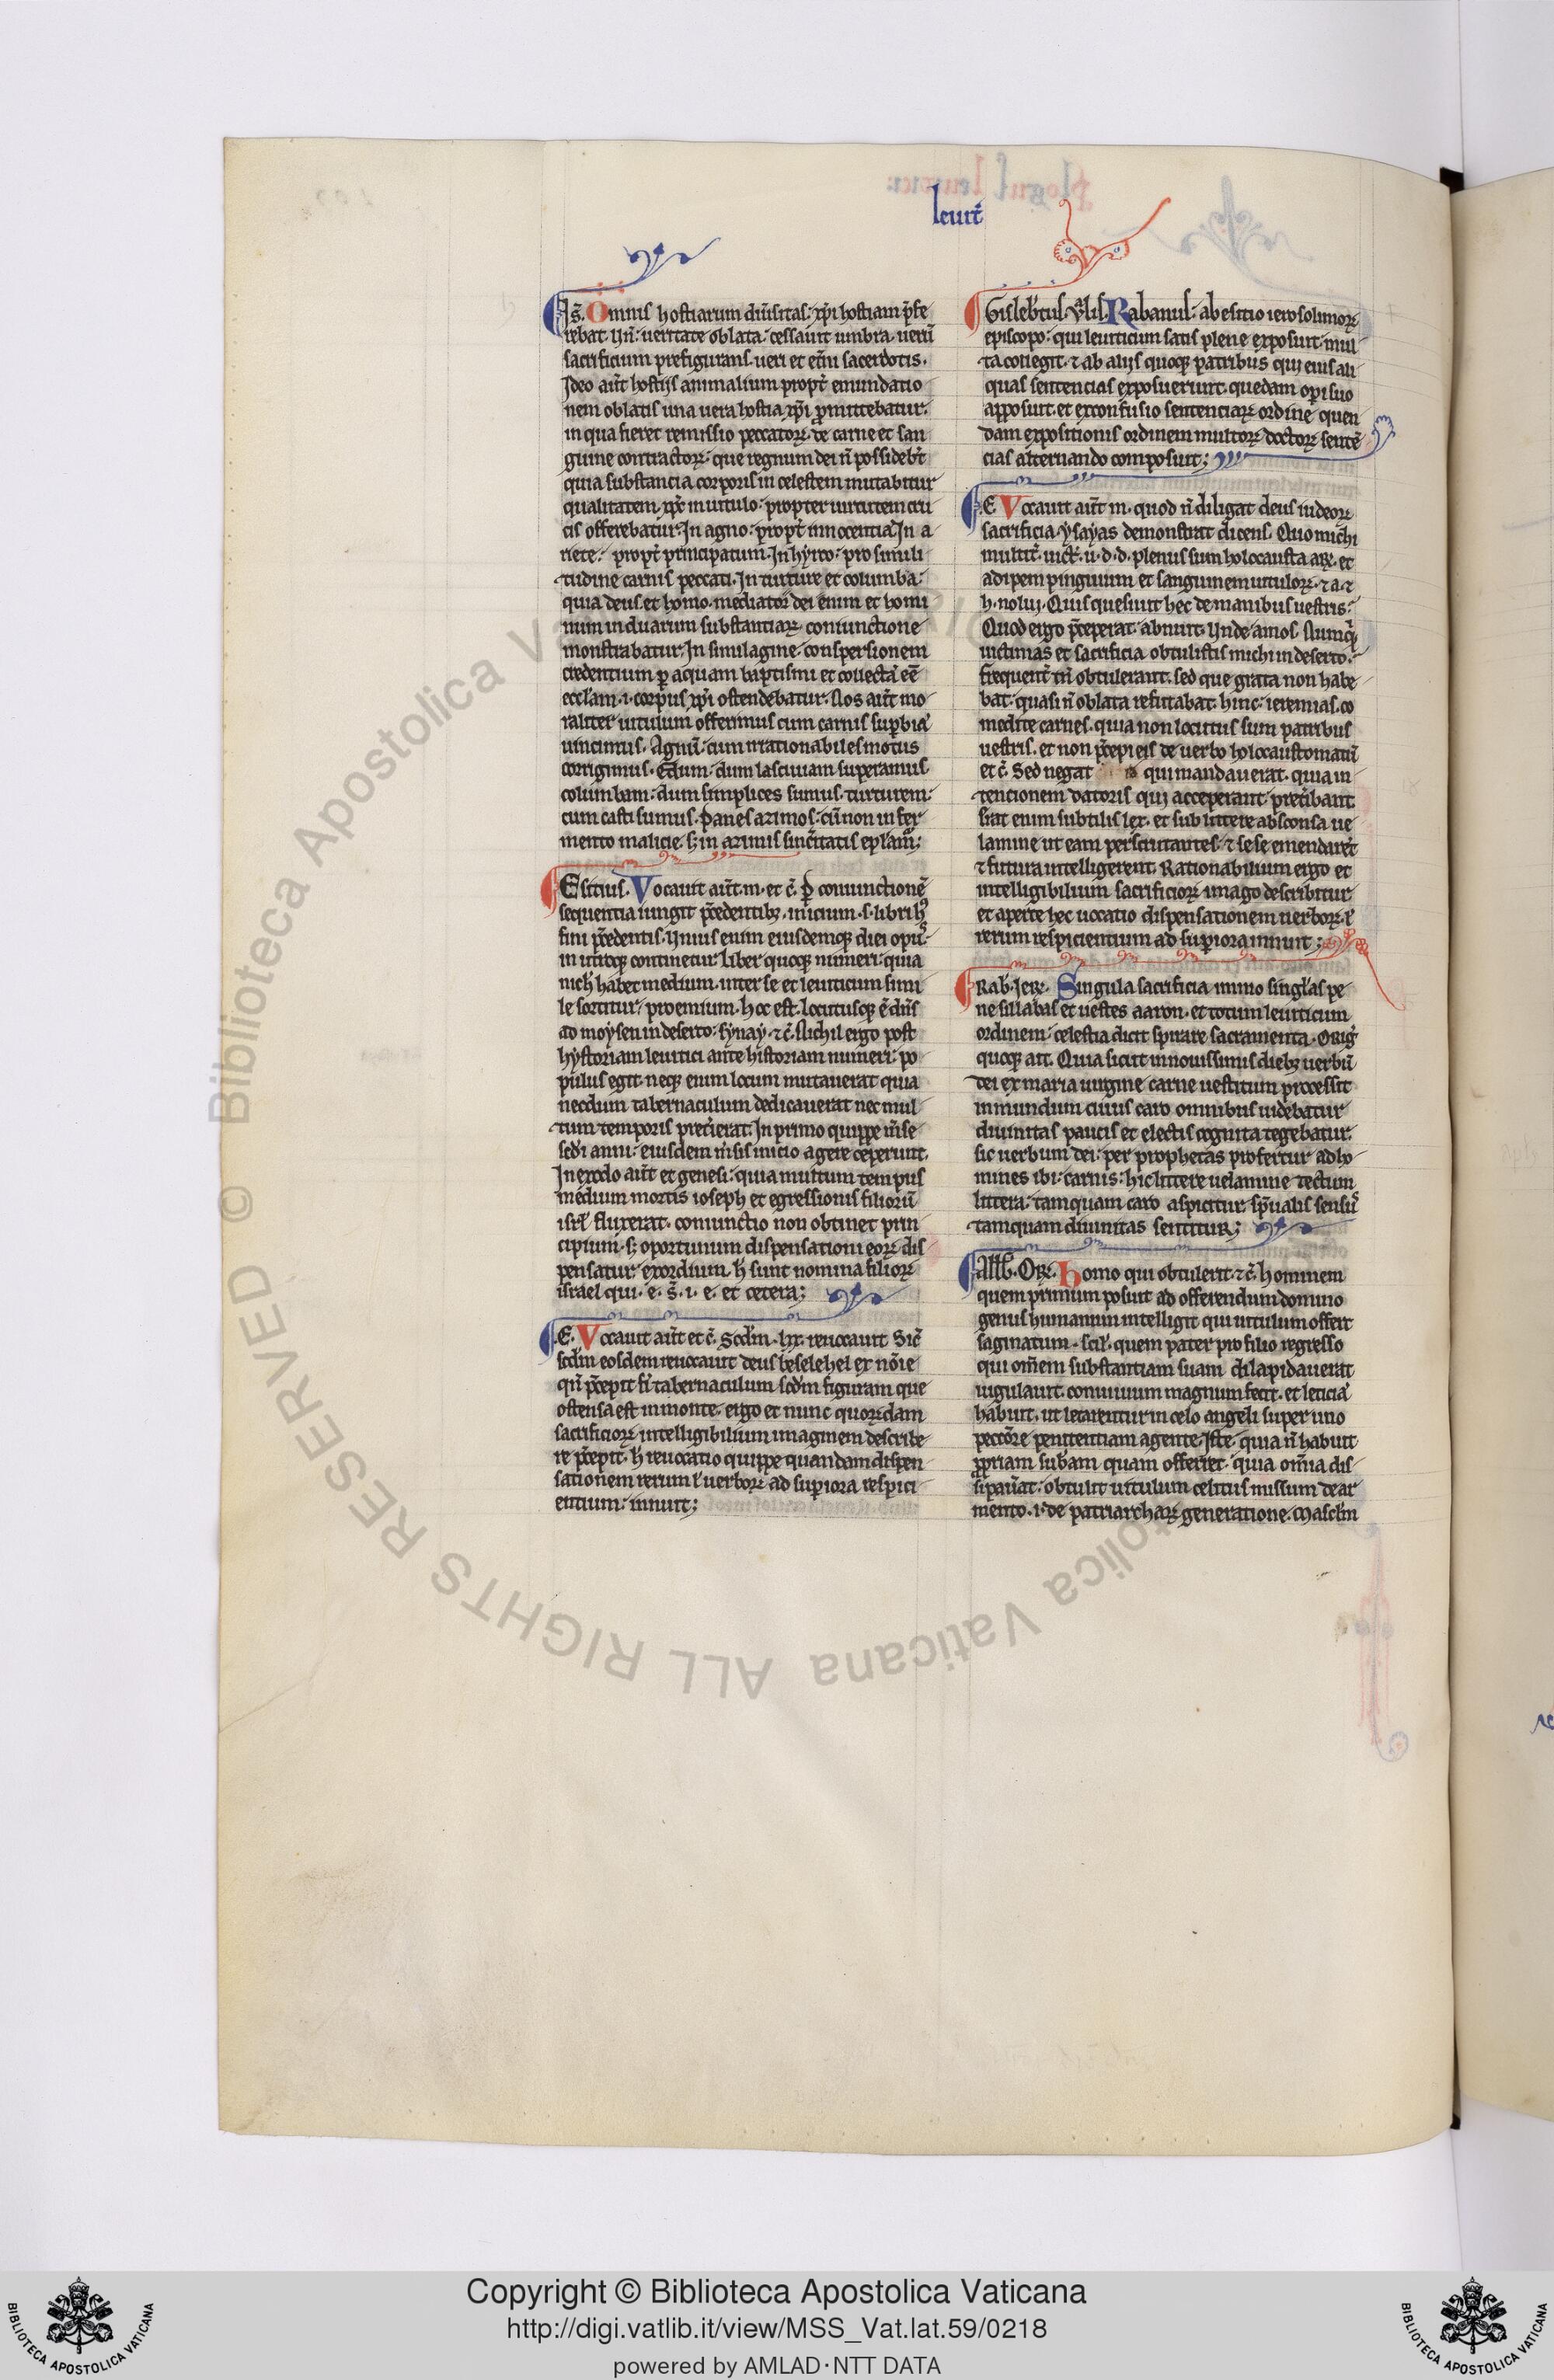 leuit̄
Is̄. Omnis hostiarum diu̅sitas: xp̄i hostiam p̄fe
rebat. Vn̄: ueritate oblata: cessauit umbra. ueru̅
sacrificium prefigurans. ueri et et̄ni sacerdotis.
Ideo aut̄ hostijs animalium propt̄ emundatio
nem oblatis una uera hostia xp̄i ꝓmittebatur.
in qua fieret remissio peccatoꝝ. de carne et san
guine contractoꝝ. que regnum dei n̄ possidebt̄
quia substancia corporis in celestem mutabitur
qualitatem. xp̄c in uitulo: propter uirtutem cru
cis offerebatur. In agno: propt̄ innocentia̅. In a
riete: propt̄ principatum. In hyrco: pro simili
tudine carnis peccati. In turture et columba:
quia deus et homo. mediator dei enim et homi
num in duarum substantiaꝝ coniunctione
monstrabatur. In similagine conspersionem
credentium ꝑ aquam baptismi et collecta̅ ēē
eccl̄am .i. corpus xp̄i ostendebatur. Nos aut̄ mo
raliter uitulum offerimus cum carnis suꝑbia̅
uincimus. Agnu̅: cum irrationabiles motus
corrigimus. Edum: dum lasciuiam superamus.
columbam: dum simplices sumus. turturem:
cum casti sumus. Panes azimos: cu̅ non in fer
mento malicie. sꝫ in azimis sinc̄itatis epl̄am̅;
Esitius. Vocauit aut̄ .m. et c̄. ꝑ coniunctione̅
sequentia iungit p̄cedentibꝫ. inicium .s. libri hꝰ
fini p̄cedentis. Vnius enim eiusdemqꝫ diei opus̄
in utroqꝫ continetur. Liber quoqꝫ numeri: quia
nich̄ habet medium. inter se et leuiticum simi
le sortitur proemium. hoc est. Locutusqꝫ ē dn̄s
ad moysen in deserto: synay. ⁊ c̄. Nichil ergo post
hystoriam leuitici ante historiam numeri: po
pulus egit. neqꝫ enim locum mutauerat quia
necdum tabernaculum dedicauerat nec mul
tum temporis pret̄ierat. In primo quippe m̄se
sc̄di anni: eiusdem m̄sis inicio agere ceperunt.
In exodo aut̄ et genesi: quia multum tempus
medium mortis ioseph et egressionis filioru̅
isrl̄ fluxerat. coniunctio non obtinet prin
cipium. sꝫ oportunum dispensationi eoꝝ dis
pensatur exordium. h̄ sunt nomina filioꝝ
israel qui. e. s̄. i. e. et cetera;
E. Vocauit aut̄ et c̄. Scd̄m .lxx. reuocauit. Sic̄
scd̄m eosdem reuocauit deus beselehel ex no̅ie
qn̄ p̄cepit fi̅ tabernaculum scd̄m figuram que
ostensa est in monte. ergo et nunc quoꝝdam
sacrificioꝝ intelligibilium imaginem describe
re p̄cepit. h̄ reuocatio quippe quandam dispen
sationem rerum ł uerboꝝ ad superiora respici
entium: innuit;
Gislebt̄us. v̄lis. Rabanus: ab esitio ierosolimoꝝ
episcopo: qui leuiticum satis plene exposuit. mul
ta collegit. ⁊ ab alijs quoqꝫ patribus qui eius ali
quas sentencias exposuerunt. quedam opi̅ suo
apposuit. et ex confusio sentenciaꝝ ordine quen
dam expositionis ordinem multoꝝ doctoꝝ sente̅
cias alternando composuit;
E Vocauit aut̄ .m. quod n̄ diligat deus iudeoꝝ
sacrificia. ysayas demonstrat dicens. Quo michi
multit̄. uict̄. u. d. d. plenus sum holocausta aꝝ. et
adipem pinguium et sanguinem uituloꝝ. ⁊ a. ⁊
h. nolui. Quis quesiuit hec de manibus uestris:
Quod ergo p̄ceperat: abnuit. Vnde amos. Nu̅qd̄
uictimas et sacrificia obtulistis michi in deserto.
frequent̄ tn̄ obtulerant. sed que grata non habe
bat: quasi n̄ oblata refutabat. hinc: ieremias. co
medite carnes. quia non locutus sum patribus
uestris. et non p̄cepi eis de uerbo holocaustomatu̅
et c̄. Sed negat qui mandauerat. quia in
tencionem datoris qui acceperant pret̄ibant.
erat enim subtilis lex. et sub littere absconsa ue
lamine ut eam perscrutantes. ⁊ sese emendare̅t
⁊ futura intelligerent. Rationabilium ergo et
intelligibilium sacrificioꝝ imago describitur
et aperte hec uocatio dispensationem uerboꝝ ł
rerum respicientium ad superiora innuit;
Rab̄. Ier̄. Singula sacrificia immo singl̄as pe
ne sillabas et uestes aaron. et totum leuiticum
ordinem: celestia dicit spirare sacramenta. Oriḡ
quoqꝫ ait. Quia sicut in nouissimis diebꝫ uerbu̅
dei ex maria uirgine carne uestitum processit
in mundum cuius caro omnibus uidebatur
diuinitas paucis et electis cognita tegebatur.
sic uerbum dei: per prophetas profertur ad ho
mines ibi: carnis: hic littere uelamine tectum
littera: tamquam caro aspicitur. spi̅ualis sensus̄
tamquam diuinitas sentitur;
Allb̄. Oꝝ. Homo qui obtulerit ⁊ c̄. Hominem
quem primum posuit ad offerendum domino
genus humanum intelligit qui uitulum offert
saginatum. scil̄. quem pater pro filio regresso
qui om̄em substantiam suam dilapidauerat
iugulauit. conuiuium magnum fecit. et leticia̅
habuit. ut letarentur in celo angeli super uno
peccōre penitentiam agente. Iste: quia n̄ habuit
ꝓpriam sub̄am quam offerret. quia om̄ia dis
sipau̅at: obtulit uitulum celitus missum de ar
mento .i. de patriarchaꝝ generatione. Masclm̄
Copyright © Biblioteca Apostolica Vaticana
http://digi.vatlib.it/view/MSS_Vat.lat.59/0218
powered by AMLAD·NTT DATA
BIBLIOTECA APOSTOLICA VATICANA
BIBLIOTECA APOSTOLICA VATICANA
© Biblioteca Apostolica Vaticana ALL RIGHTS RESERVED